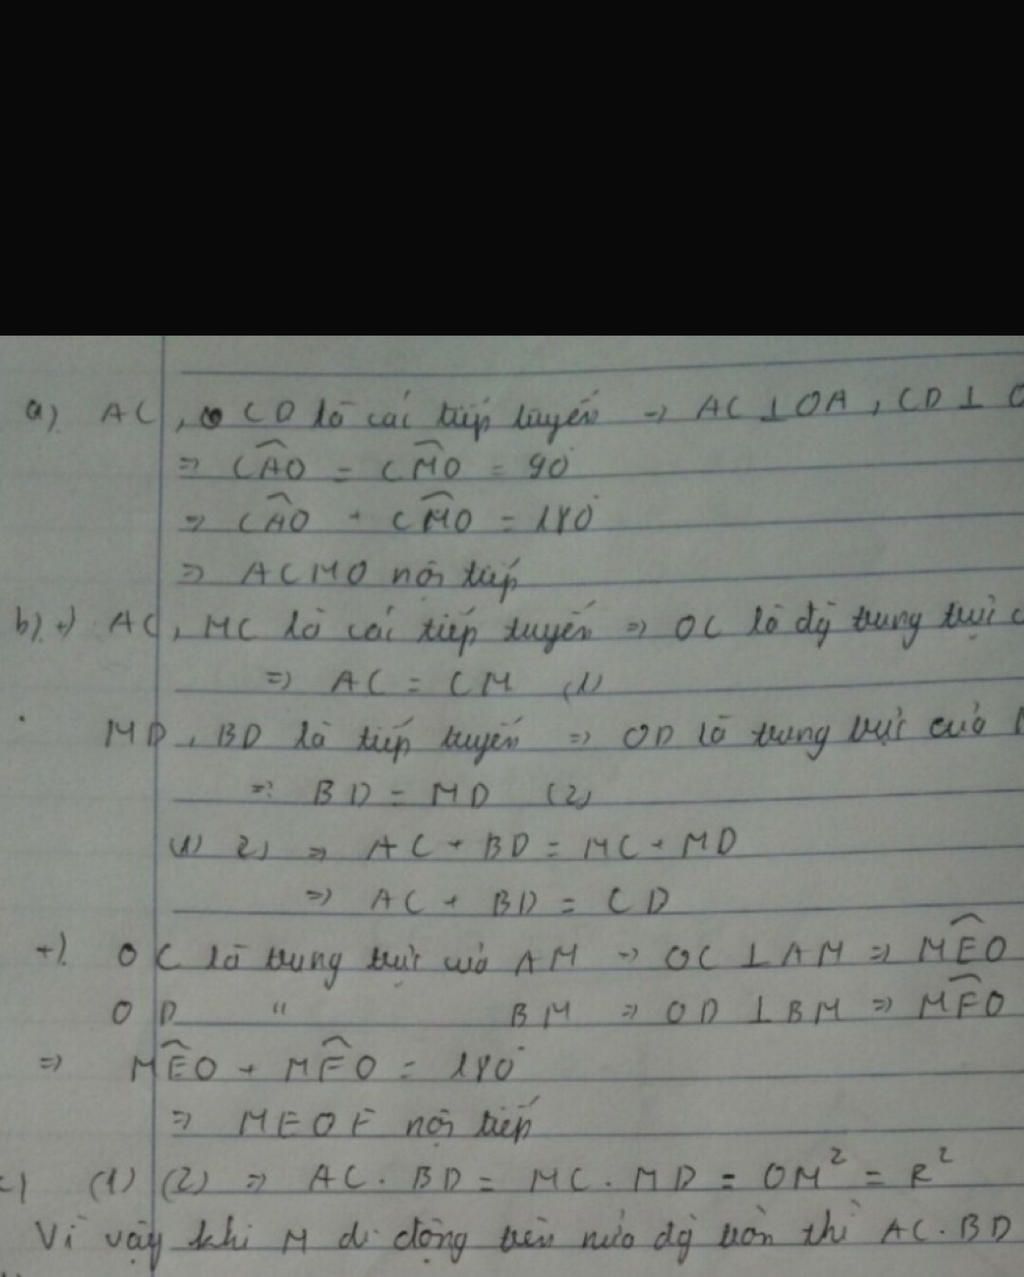 a) AC, CD là các tiếp tuyến → AC ⊥ OA, CD ⊥
⇒ CÂO = CM̂O = 90°
⇒ CÂO + CM̂O = 180°
⇒ ACMO nội tiếp
b) +) AC, MC là các tiếp tuyến ⇒ OC là đg trung trực
⇒ AC = CM (1)
MD, BD là tiếp tuyến ⇒ OD là trung trực của
⇒ BD = MD (2)
(1) (2) ⇒ AC + BD = MC + MD
⇒ AC + BD = CD
+). OC là trung trực của AM → OC ⊥ AM ⇒ MÊO
OD " BM ⇒ OD ⊥ BM ⇒ MF̂O
⇒ MÊO + MF̂O = 180°
⇒ MEOF nội tiếp
c) (1) (2) ⇒ AC . BD = MC . MD = OM² = R²
Vì vậy khi M di động trên nửa đg tròn thì AC . BD